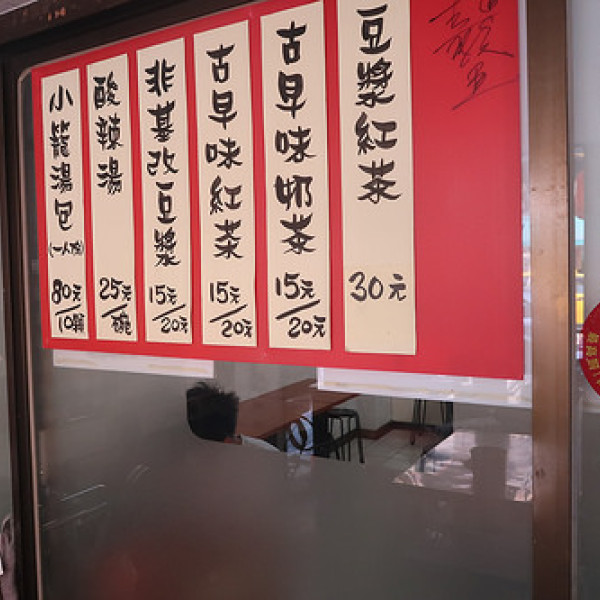 豆漿紅茶
30元
古早味奶茶
15元/20元
古早味紅茶
15元/20元
非基改豆漿
15元/20元
酸辣湯
25元/碗
小籠湯包
80元/10顆